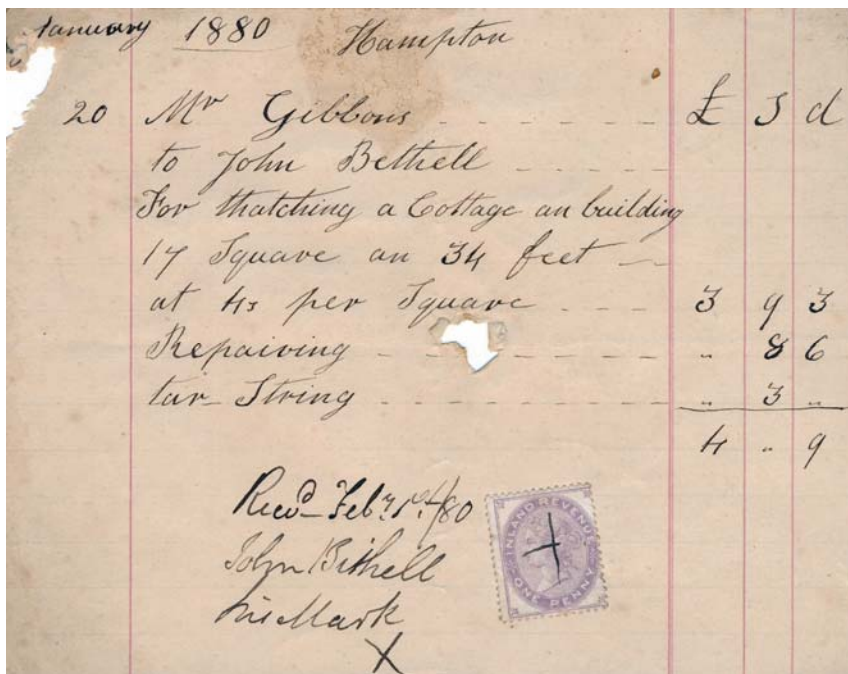 January 1880 Hampton
20 Mr Gibbons £ S d
to John Bethell
For thatching a Cottage an building
17 Square an 34 feet
at 4s per Square 3 9 3
Repairing " 8 6
tar String " 3 "
4 " 9
Recd Feby 1st/80
John Bithell
his Mark
X
INLAND REVENUE
ONE PENNY